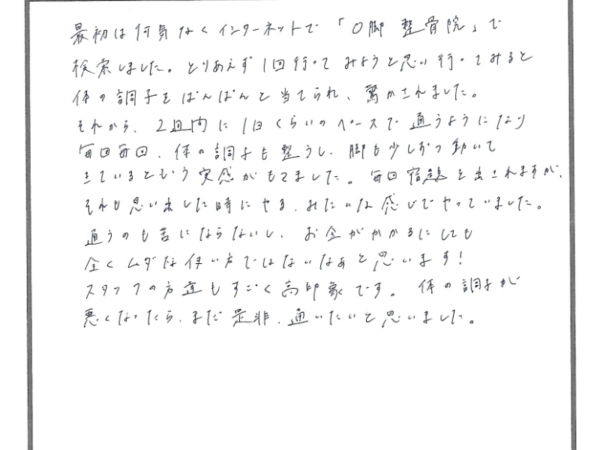 最初は何気なくインターネットで「O脚 整骨院」で
検索しました。とりあえず1回行ってみようと思い行ってみると
体の調子をばんばんと当てられ、驚かされました。
それから、2週間に1回くらいのペースで通うようになり
毎回毎回、体の調子も整うし、脚も少しずつ動いて
きているという実感がもてました。毎回宿題を出されますが、
それも思い出した時にやる、みたいな感じでやっていました。
通うのも苦にならないし、お金がかかるにしても
全くムダな使い方ではないなぁと思います!
スタッフの方達もすごく高印象です。体の調子が
悪くなったら、まだ是非、通いたいと思いました。